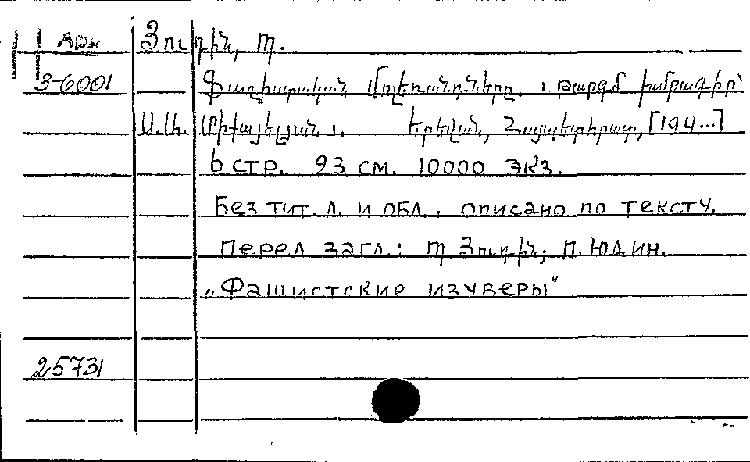 АРм Յուդին, Պ.
3-6001 Ֆաշիստական մոլեռանդները. թարգմ խմբագիր՝
Ս.Ա. Միքայելյան. Երևան, Հայպետհրատ, [194...]
6 стр. 23 см. 10000 экз.
Без тит. л. и обл., описано по тексту.
Перед загл.: Պ Յուդին; П. Юдин.
„Фашистские изуверы“
25731